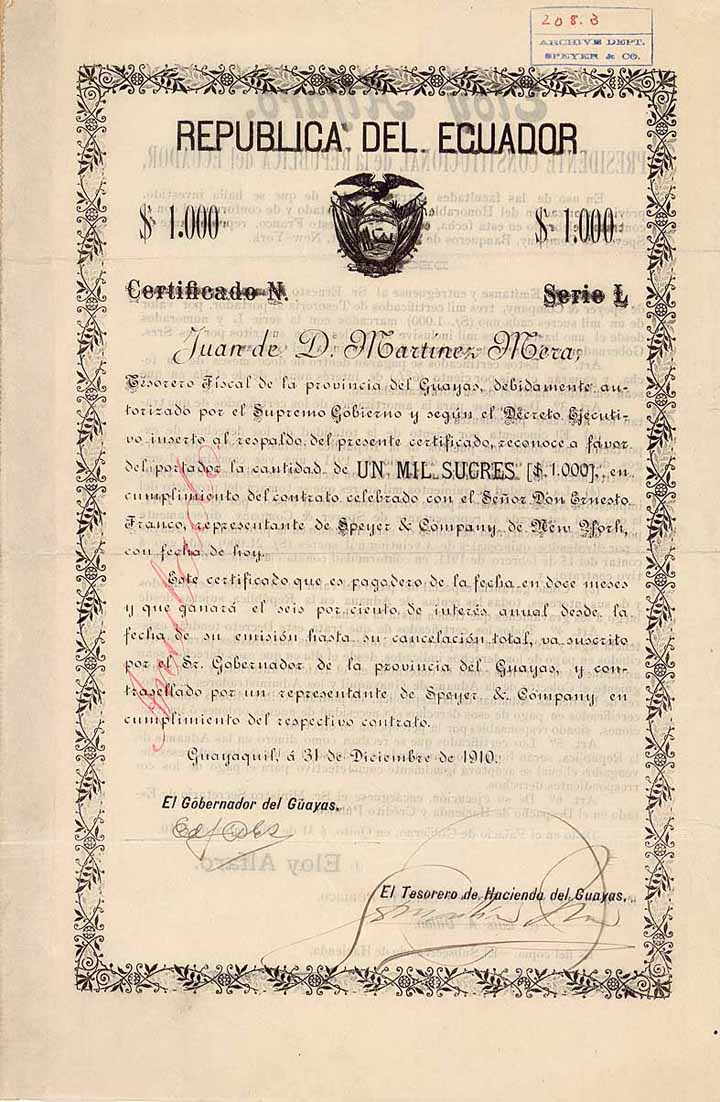 208.3
ARCHIVE DEPT.
SPEYER & CO.
REPUBLICA DEL ECUADOR
$ 1.000
$ 1.000
Certificado N.
Serie L
Juan de D. Martínez Mera,
Tesorero Fiscal de la provincia del Guayas, debidamente au-
torizado por el Supremo Gobierno y según el Decreto Ejecuti-
vo inserto al respaldo del presente certificado, reconoce a favor
del portador la cantidad de UN MIL SUCRES [$. 1.000], en
cumplimiento del contrato celebrado con el Señor Don Ernesto
Franco, representante de Speyer & Company de New York,
con fecha de hoy.
Este certificado que es pagadero de la fecha en doce meses
y que ganará el seis por ciento de interés anual desde la
fecha de su emisión hasta su cancelación total, va suscrito
por el Sr. Gobernador de la provincia del Guayas, y con-
trasellado por un representante de Speyer & Company en
cumplimiento del respectivo contrato.
Guayaquil, á 31 de Diciembre de 1910.
El Gobernador del Güayas,
El Tesorero de Hacienda del Guayas,